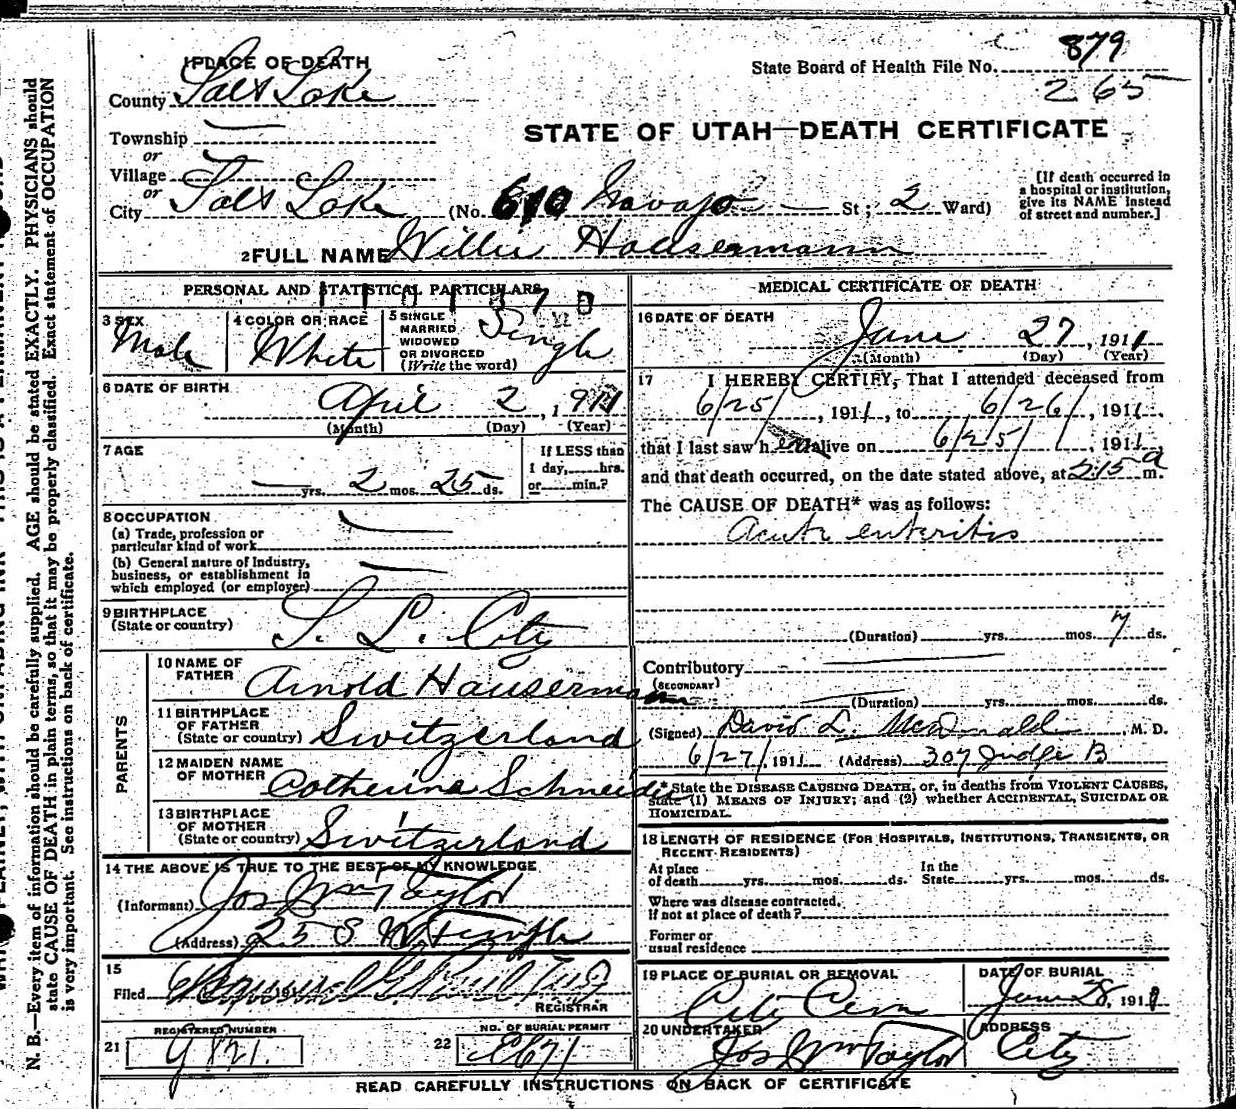 1 PLACE OF DEATH
State Board of Health File No. 879
265
County Salt Lake
STATE OF UTAH—DEATH CERTIFICATE
Township
or
Village
or
City Salt Lake (No. 610 Navajo St; 2 Ward)
[If death occurred in
a hospital or institution,
give its NAME instead
of street and number.]
2 FULL NAME Willie Hausermann
PERSONAL AND STATISTICAL PARTICULARS
3 SEX
Male
4 COLOR OR RACE
White
5 SINGLE
MARRIED
WIDOWED
OR DIVORCED
(Write the word)
Single
6 DATE OF BIRTH
April 2, 1911
(Month) (Day) (Year)
7 AGE
yrs. 2 mos. 25 ds.
If LESS than
1 day, hrs.
or min.?
8 OCCUPATION
(a) Trade, profession or
particular kind of work
(b) General nature of Industry,
business, or establishment in
which employed (or employer)
9 BIRTHPLACE
(State or country) S. L. City
PARENTS
10 NAME OF
FATHER Arnold Hausermann
11 BIRTHPLACE
OF FATHER
(State or country) Switzerland
12 MAIDEN NAME
OF MOTHER Catherina Schneider
13 BIRTHPLACE
OF MOTHER
(State or country) Switzerland
14 THE ABOVE IS TRUE TO THE BEST OF MY KNOWLEDGE
(Informant) Jos Wm Taylor
(Address) 25 S W Temple
15
Filed 191
REGISTRAR
REGISTERED NUMBER
21
NO. OF BURIAL PERMIT
22
MEDICAL CERTIFICATE OF DEATH
16 DATE OF DEATH
June 27, 1911
(Month) (Day) (Year)
17 I HEREBY CERTIFY, That I attended deceased from
6/25/, 1911, to 6/26/, 1911.
that I last saw h alive on 6/25/ 1911
and that death occurred, on the date stated above, at 2:15 a m.
The CAUSE OF DEATH* was as follows:
Acute enteritis
(Duration) yrs. mos. 7 ds.
Contributory
(SECONDARY)
(Duration) yrs. mos. ds.
(Signed) David L. McDonald M. D.
6/27/, 1911 (Address) 307 Judge B
*State the DISEASE CAUSING DEATH, or, in deaths from VIOLENT CAUSES,
state (1) MEANS OF INJURY; and (2) whether ACCIDENTAL, SUICIDAL OR
HOMICIDAL.
18 LENGTH OF RESIDENCE (FOR HOSPITALS, INSTITUTIONS, TRANSIENTS, OR
RECENT RESIDENTS)
At place
of death yrs. mos. ds.
In the
State yrs. mos. ds.
Where was disease contracted,
If not at place of death?
Former or
usual residence
19 PLACE OF BURIAL OR REMOVAL
City Cem
DATE OF BURIAL
June 28, 1911
20 UNDERTAKER
Jos Wm Taylor
ADDRESS
City
READ CAREFULLY INSTRUCTIONS ON BACK OF CERTIFICATE
N. B.—Every item of information should be carefully supplied. AGE should be stated EXACTLY. PHYSICIANS should
state CAUSE OF DEATH in plain terms, so that it may be properly classified. Exact statement of OCCUPATION
is very important. See instructions on back of certificate.